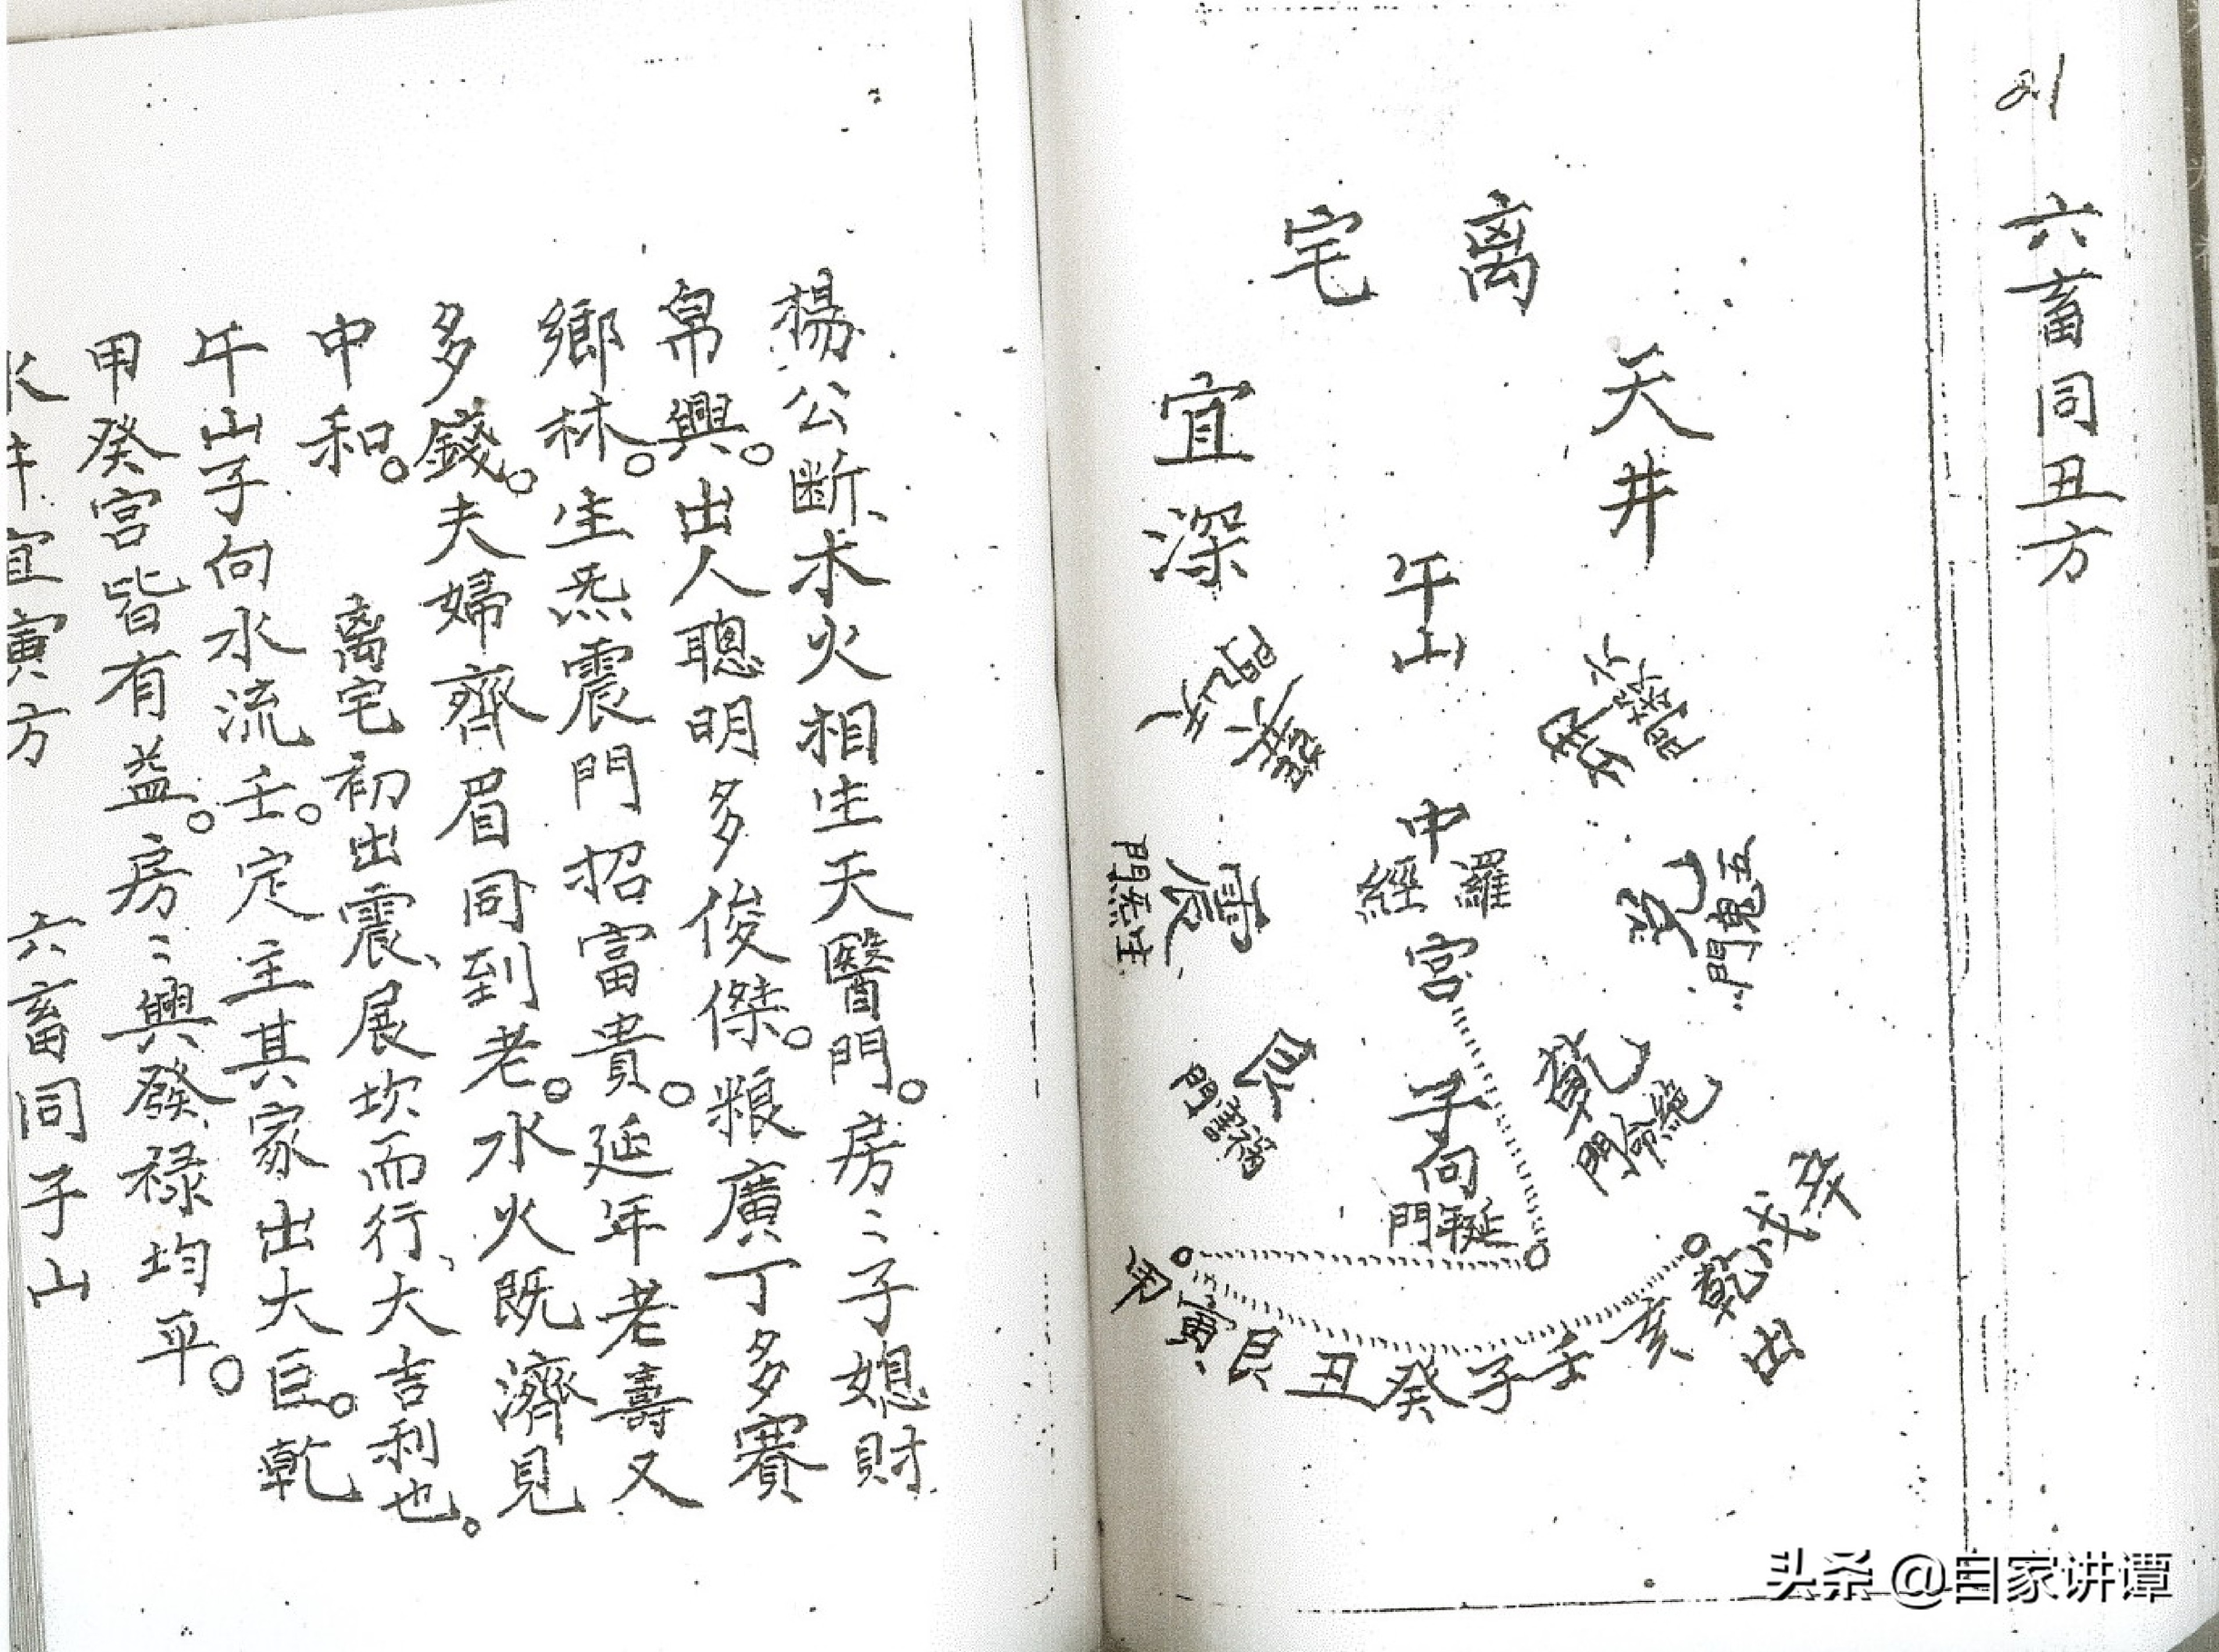 21
六畜同丑方
离宅
天井
宜深
午山
巽
天醫門
坤
六煞門
中宮
羅經
兌
五鬼門
震
生炁門
艮
禍害門
乾
絕命門
子向
延年門
甲寅艮丑癸子壬亥乾戌辛
出
楊公斷、水火相生天醫門。房〻子媳財
帛興。出人聰明多俊傑。粮廣丁多賽
鄉林。生炁震門招富貴。延年老壽又
多錢。夫婦齊眉同到老。水火既濟見
中和。 离宅初出震、展坎而行、大吉利也。
午山子向水流壬。定主其家出大巨。乾
甲癸宮皆有益。房〻興發祿均平。
水井宜寅方 六畜同子山
头条 @自家讲谭